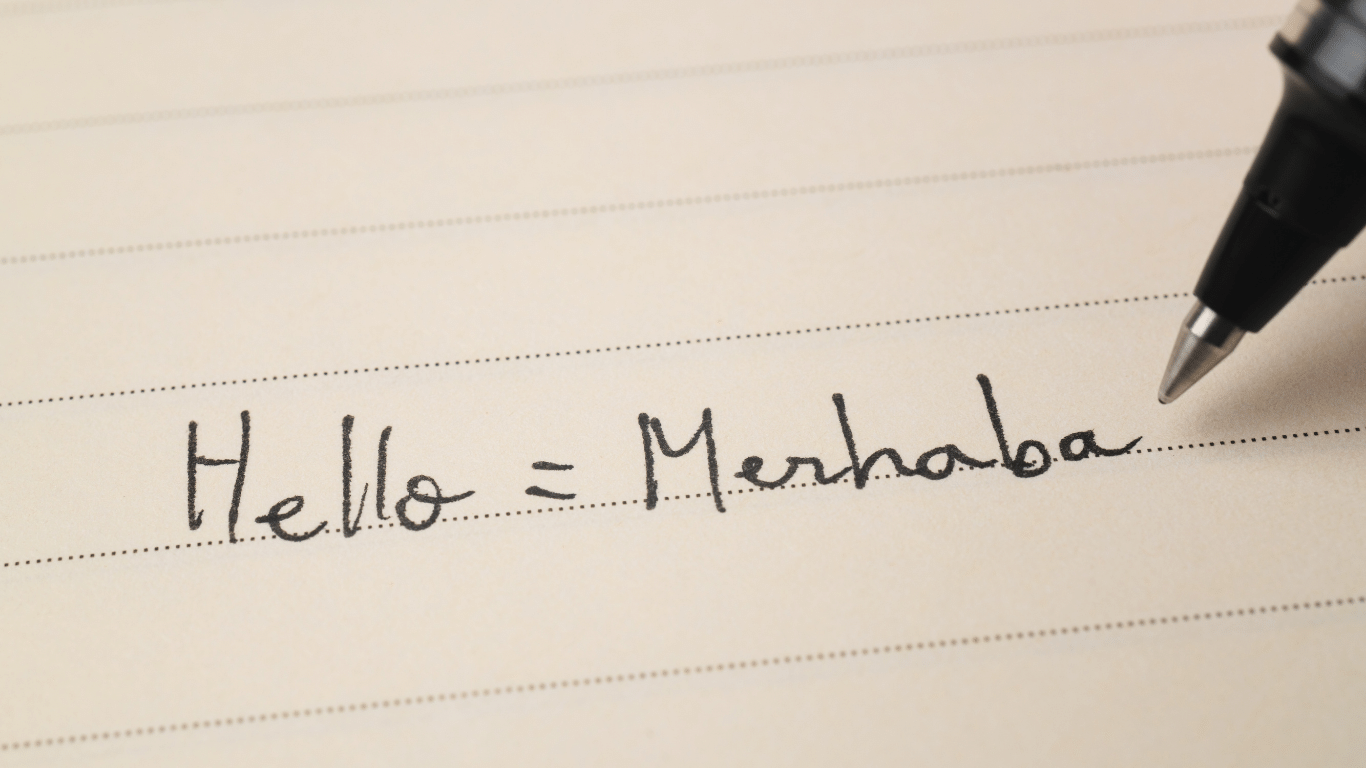 Hello = Merhaba